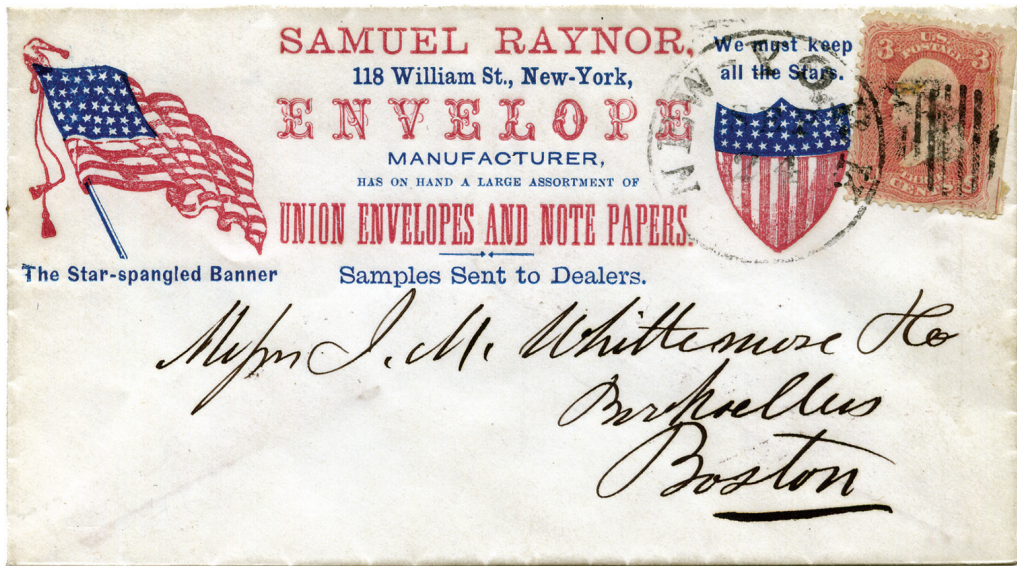 SAMUEL RAYNOR,
118 William St., New-York,
ENVELOPE
MANUFACTURER,
HAS ON HAND A LARGE ASSORTMENT OF
UNION ENVELOPES AND NOTE PAPERS.
Samples Sent to Dealers.
The Star-spangled Banner
We must keep
all the Stars.
NEW-YORK
24
U.S.
POSTAGE
3 3
CENTS
Messrs J. M. Whittemore & Co
Booksellers
Boston